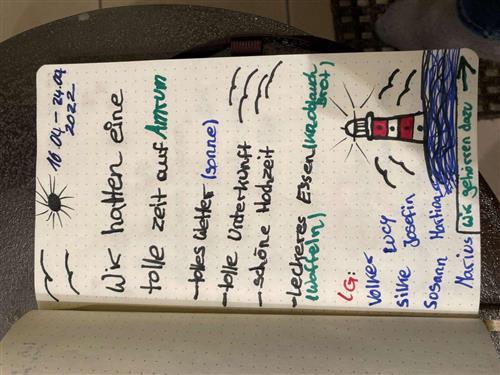 16.04 - 24.04
2022
Wir hatten eine
tolle zeit auf Amrum
-tolles Wetter (sonne)
-tolle Unterkunft
-schöne Hochzeit
-Leckeres Essen (knoblauch
Brot)
(Waffeln)
LG:
Volker Lucy
Silke Josefin
Susann Martina
Marius Wir gehören dazu →